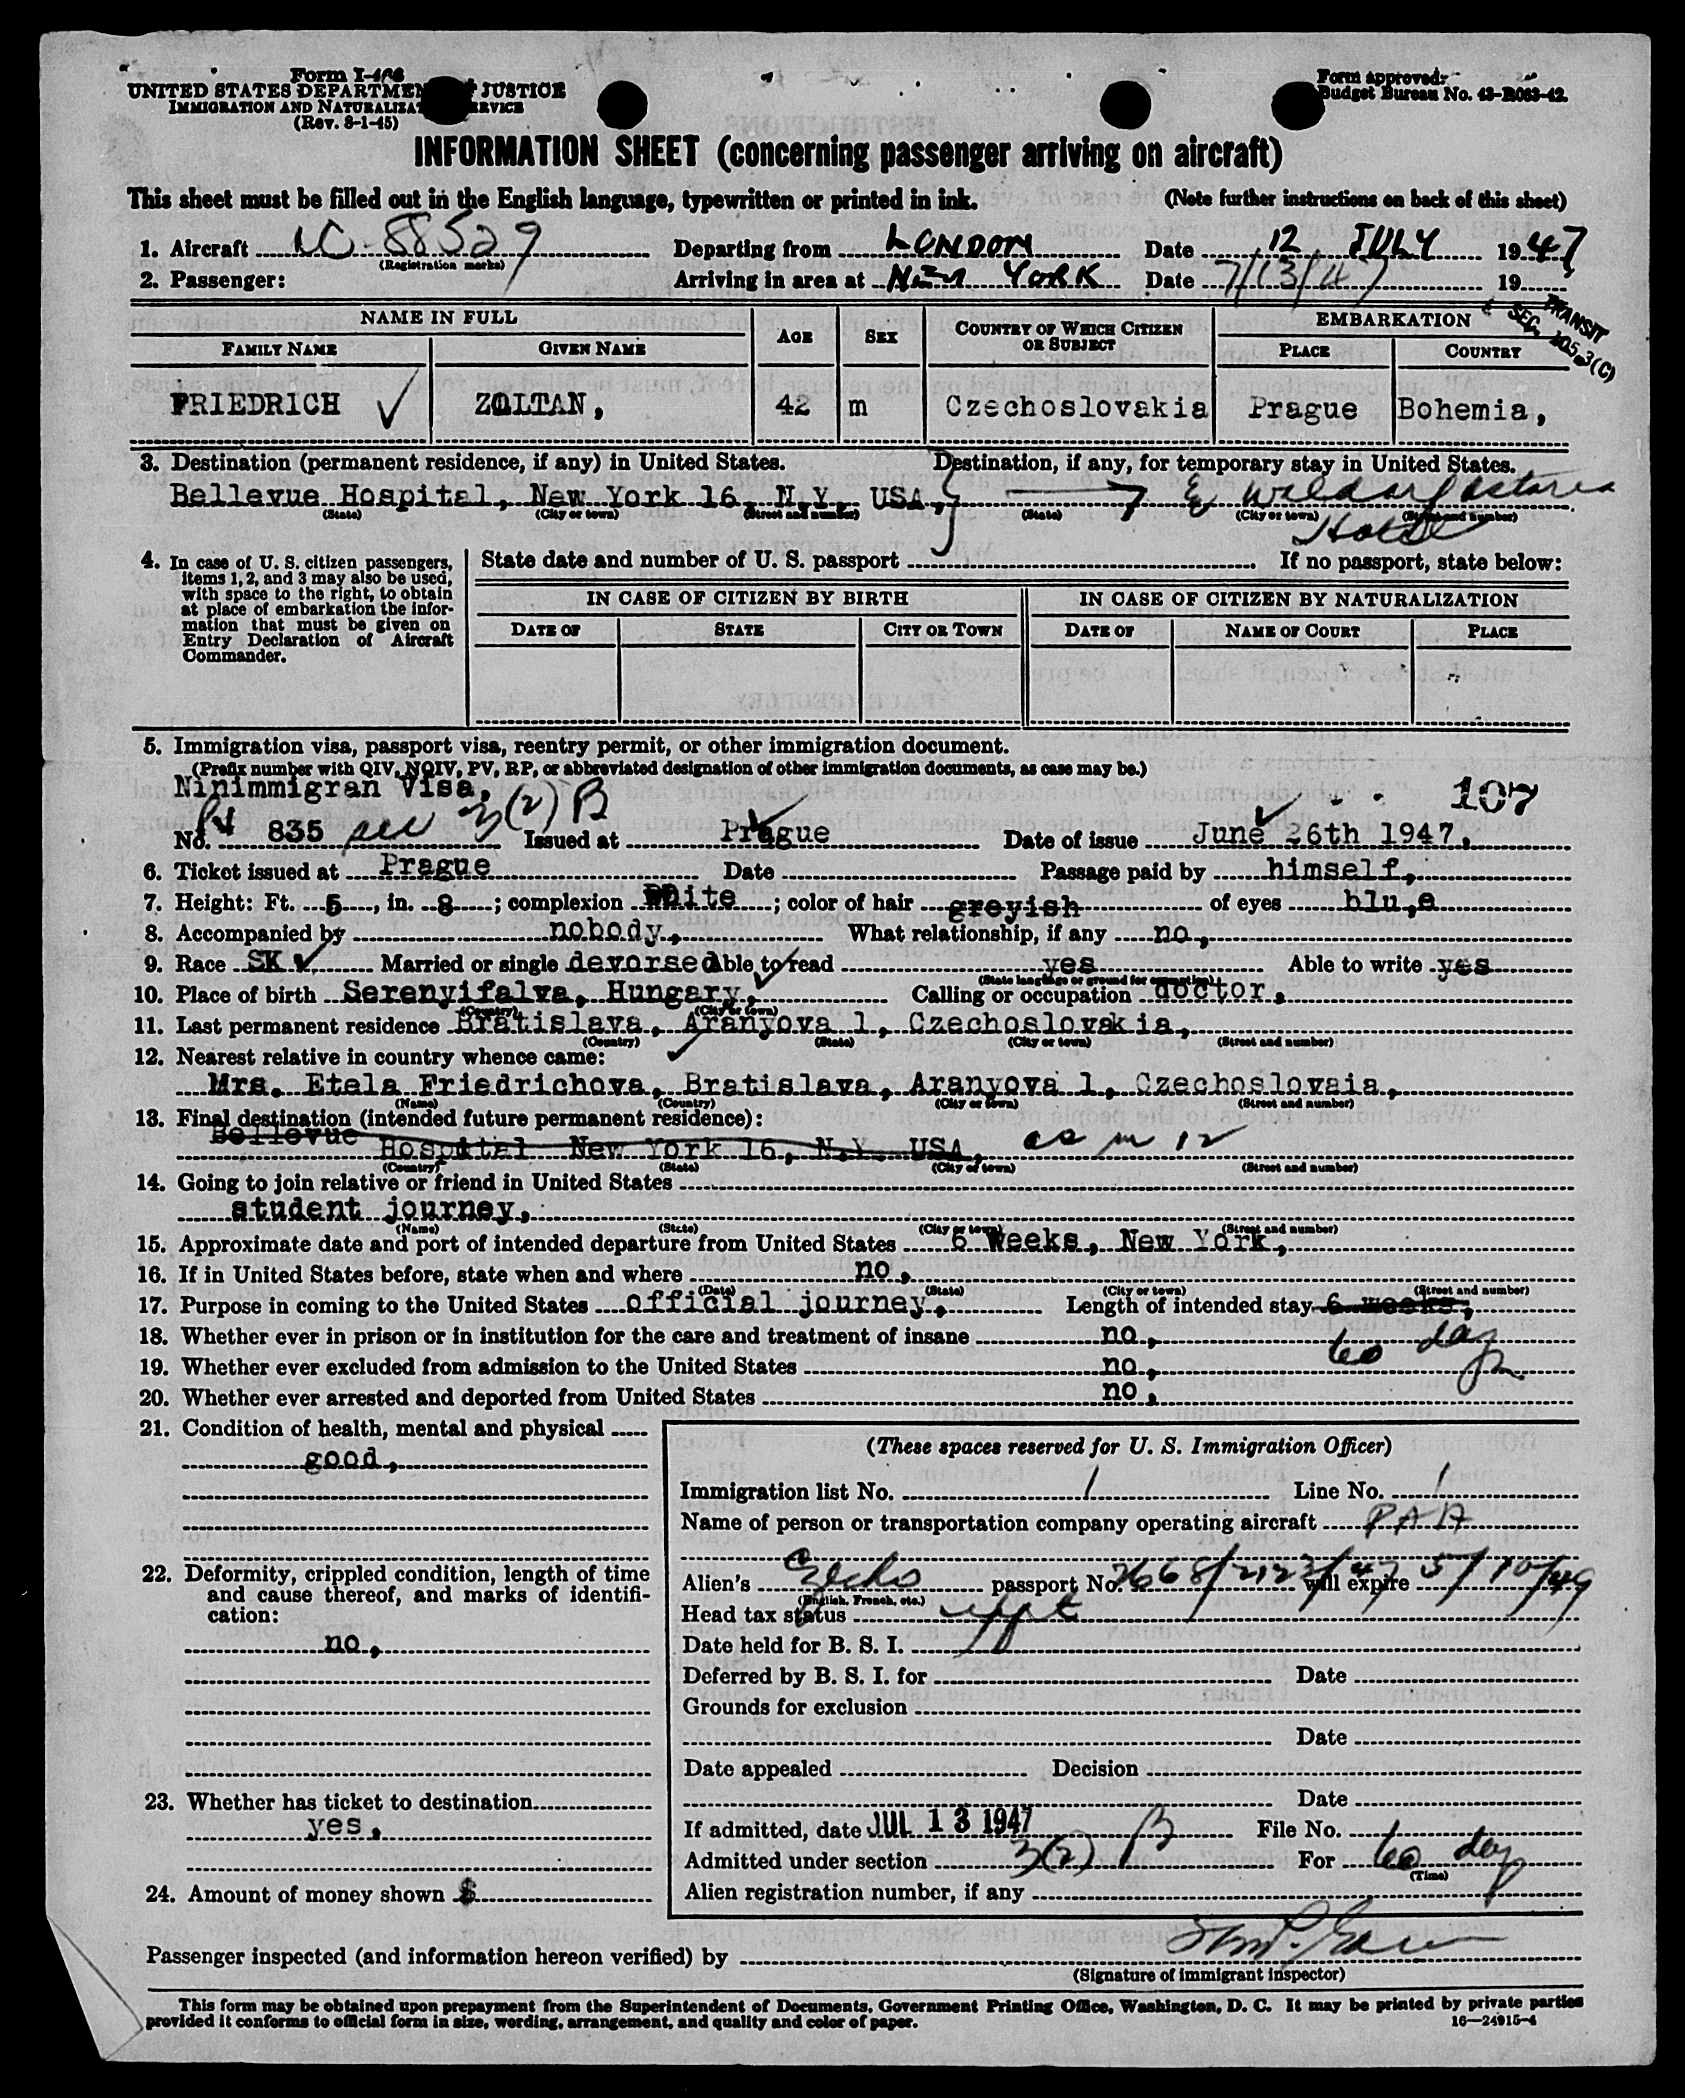 Form I-466
UNITED STATES DEPARTMENT JUSTICE
IMMIGRATION AND NATURALIZATION SERVICE
(Rev. 8-1-45)
Form approved:
Budget Bureau No. 43-R063-42.
INFORMATION SHEET (concerning passenger arriving on aircraft)
This sheet must be filled out in the English language, typewritten or printed in ink. (Note further instructions on back of this sheet)
1. Aircraft NC-88529 Departing from LONDON Date 12 JULY 1947
(Registration marks)
2. Passenger: Arriving in area at NEW YORK Date 7/13/47 19
TRANSIT
SEC. 105.3(C)
NAME IN FULL AGE SEX COUNTRY OF WHICH CITIZEN OR SUBJECT EMBARKATION
FAMILY NAME GIVEN NAME PLACE COUNTRY
FRIEDRICH ZOLTAN, 42 m Czechoslovakia Prague Bohemia,
3. Destination (permanent residence, if any) in United States. Destination, if any, for temporary stay in United States.
Bellevue Hospital, New York 16, N.Y. USA, Waldorf Astoria
(State) (City or town) (Street and number) (State) (City or town) (Street and number)
Hotel
4. In case of U. S. citizen passengers, items 1, 2, and 3 may also be used, with space to the right, to obtain at place of embarkation the information that must be given on Entry Declaration of Aircraft Commander.
State date and number of U. S. passport If no passport, state below:
IN CASE OF CITIZEN BY BIRTH IN CASE OF CITIZEN BY NATURALIZATION
DATE OF STATE CITY OR TOWN DATE OF NAME OF COURT PLACE
5. Immigration visa, passport visa, reentry permit, or other immigration document.
(Prefix number with QIV, NQIV, PV, RP, or abbreviated designation of other immigration documents, as case may be.)
Ninimmigran Visa, 107
No. PV 835 sec 3(2) B Issued at Prague Date of issue June 26th 1947,
6. Ticket issued at Prague Date Passage paid by himself,
7. Height: Ft. 5, in. 8; complexion White; color of hair greyish of eyes blu,e
8. Accompanied by nobody, What relationship, if any no,
9. Race SK Married or single devorsed Able to read yes Able to write yes
(State language or ground for exemption)
10. Place of birth Serenyifalva, Hungary, Calling or occupation doctor,
(Country) (City or town)
11. Last permanent residence Bratislava, Aranyova 1, Czechoslovakia,
(Country) (State) (City or town) (Street and number)
12. Nearest relative in country whence came:
Mrs. Etela Friedrichova, Bratislava, Aranyova 1, Czechoslovaia,
(Name) (Country) (City or town) (Street and number)
13. Final destination (intended future permanent residence):
Bellevue Hospital New York 16, N.Y. USA, as in 12
(Country) (State) (City or town) (Street and number)
14. Going to join relative or friend in United States
student journey,
(Name) (State) (City or town) (Street and number)
15. Approximate date and port of intended departure from United States 6 Weeks, New York,
16. If in United States before, state when and where no,
(Date) (State) (City or town) (Street and number)
17. Purpose in coming to the United States official journey, Length of intended stay 6 weeks,
60 days
18. Whether ever in prison or in institution for the care and treatment of insane no,
19. Whether ever excluded from admission to the United States no,
20. Whether ever arrested and deported from United States no,
21. Condition of health, mental and physical
good,
22. Deformity, crippled condition, length of time and cause thereof, and marks of identification:
no,
23. Whether has ticket to destination
yes,
24. Amount of money shown $
(These spaces reserved for U. S. Immigration Officer)
Immigration list No. 1 Line No. 1
Name of person or transportation company operating aircraft PAA
Alien's Czecho passport No. 7668/2123/47 will expire 5/10/49
(English, French, etc.)
Head tax status
Date held for B. S. I.
Deferred by B. S. I. for Date
Grounds for exclusion
Date
Date appealed Decision
Date
If admitted, date JUL 13 1947 File No.
Admitted under section 3(2) B For 60 days
(Time)
Alien registration number, if any
Passenger inspected (and information hereon verified) by
(Signature of immigrant inspector)
This form may be obtained upon prepayment from the Superintendent of Documents, Government Printing Office, Washington, D. C. It may be printed by private parties
provided it conforms to official form in size, wording, arrangement, and quality and color of paper.
16—24915-4